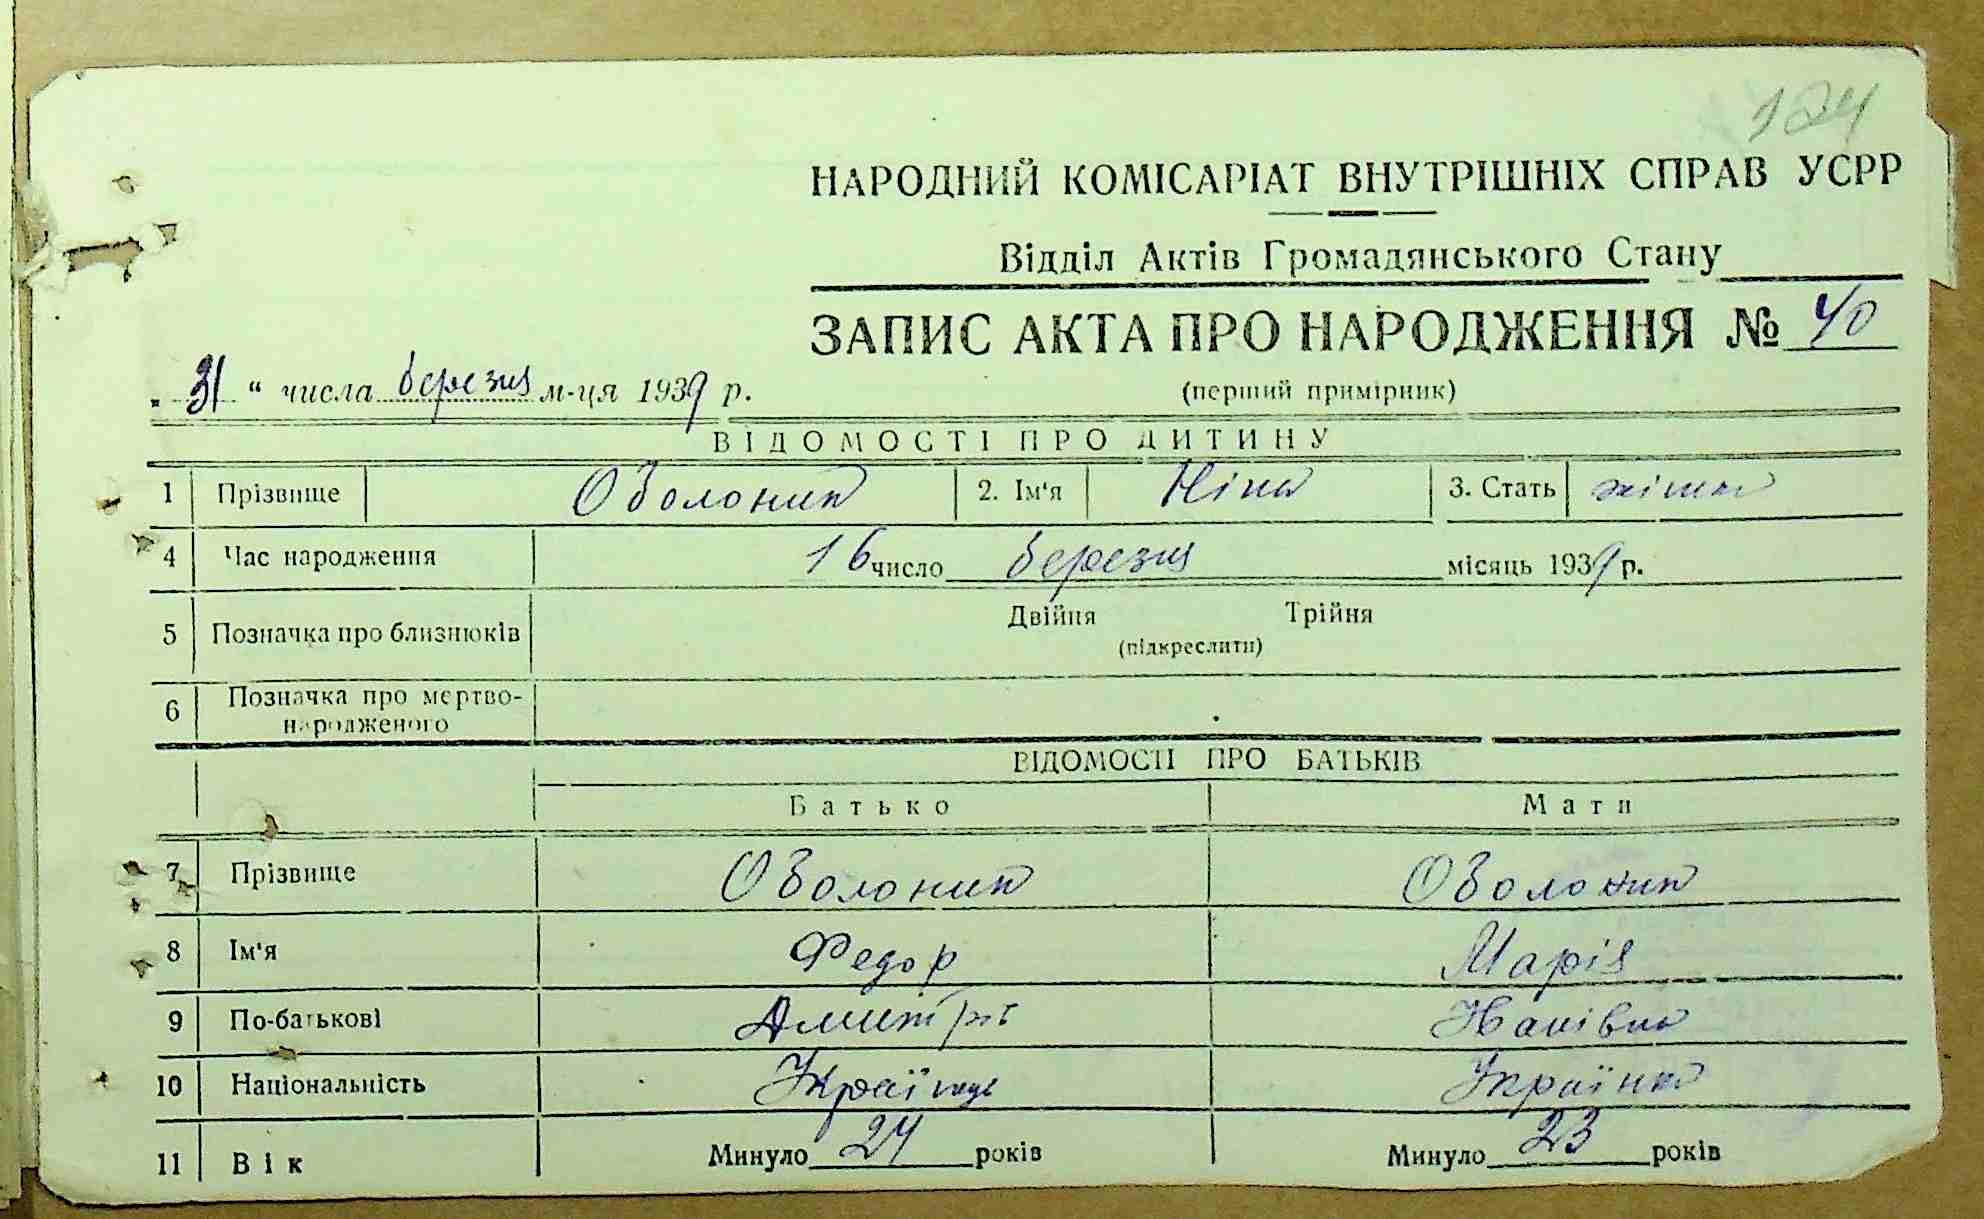 124
НАРОДНИЙ КОМІСАРІАТ ВНУТРІШНІХ СПРАВ УСРР
Відділ Актів Громадянського Стану
ЗАПИС АКТА ПРО НАРОДЖЕННЯ № 40
„ 31 “ числа березня м-ця 1939 р.
(перший примірник)
ВІДОМОСТІ ПРО ДИТИНУ
1 Прізвище Оболоник 2. Ім'я Ніна 3. Стать жіноча
4 Час народження 16 число березня місяць 1939 р.
5 Позначка про близнюків Двійня Трійня
(підкреслити)
6 Позначка про мертво-
народженого
ВІДОМОСТІ ПРО БАТЬКІВ
Батько Мати
7 Прізвище Оболоник Оболоник
8 Ім'я Федор Марія
9 По-батькові Дмитров Іванівна
10 Національність Українець Українка
11 Вік Минуло 24 років Минуло 23 років